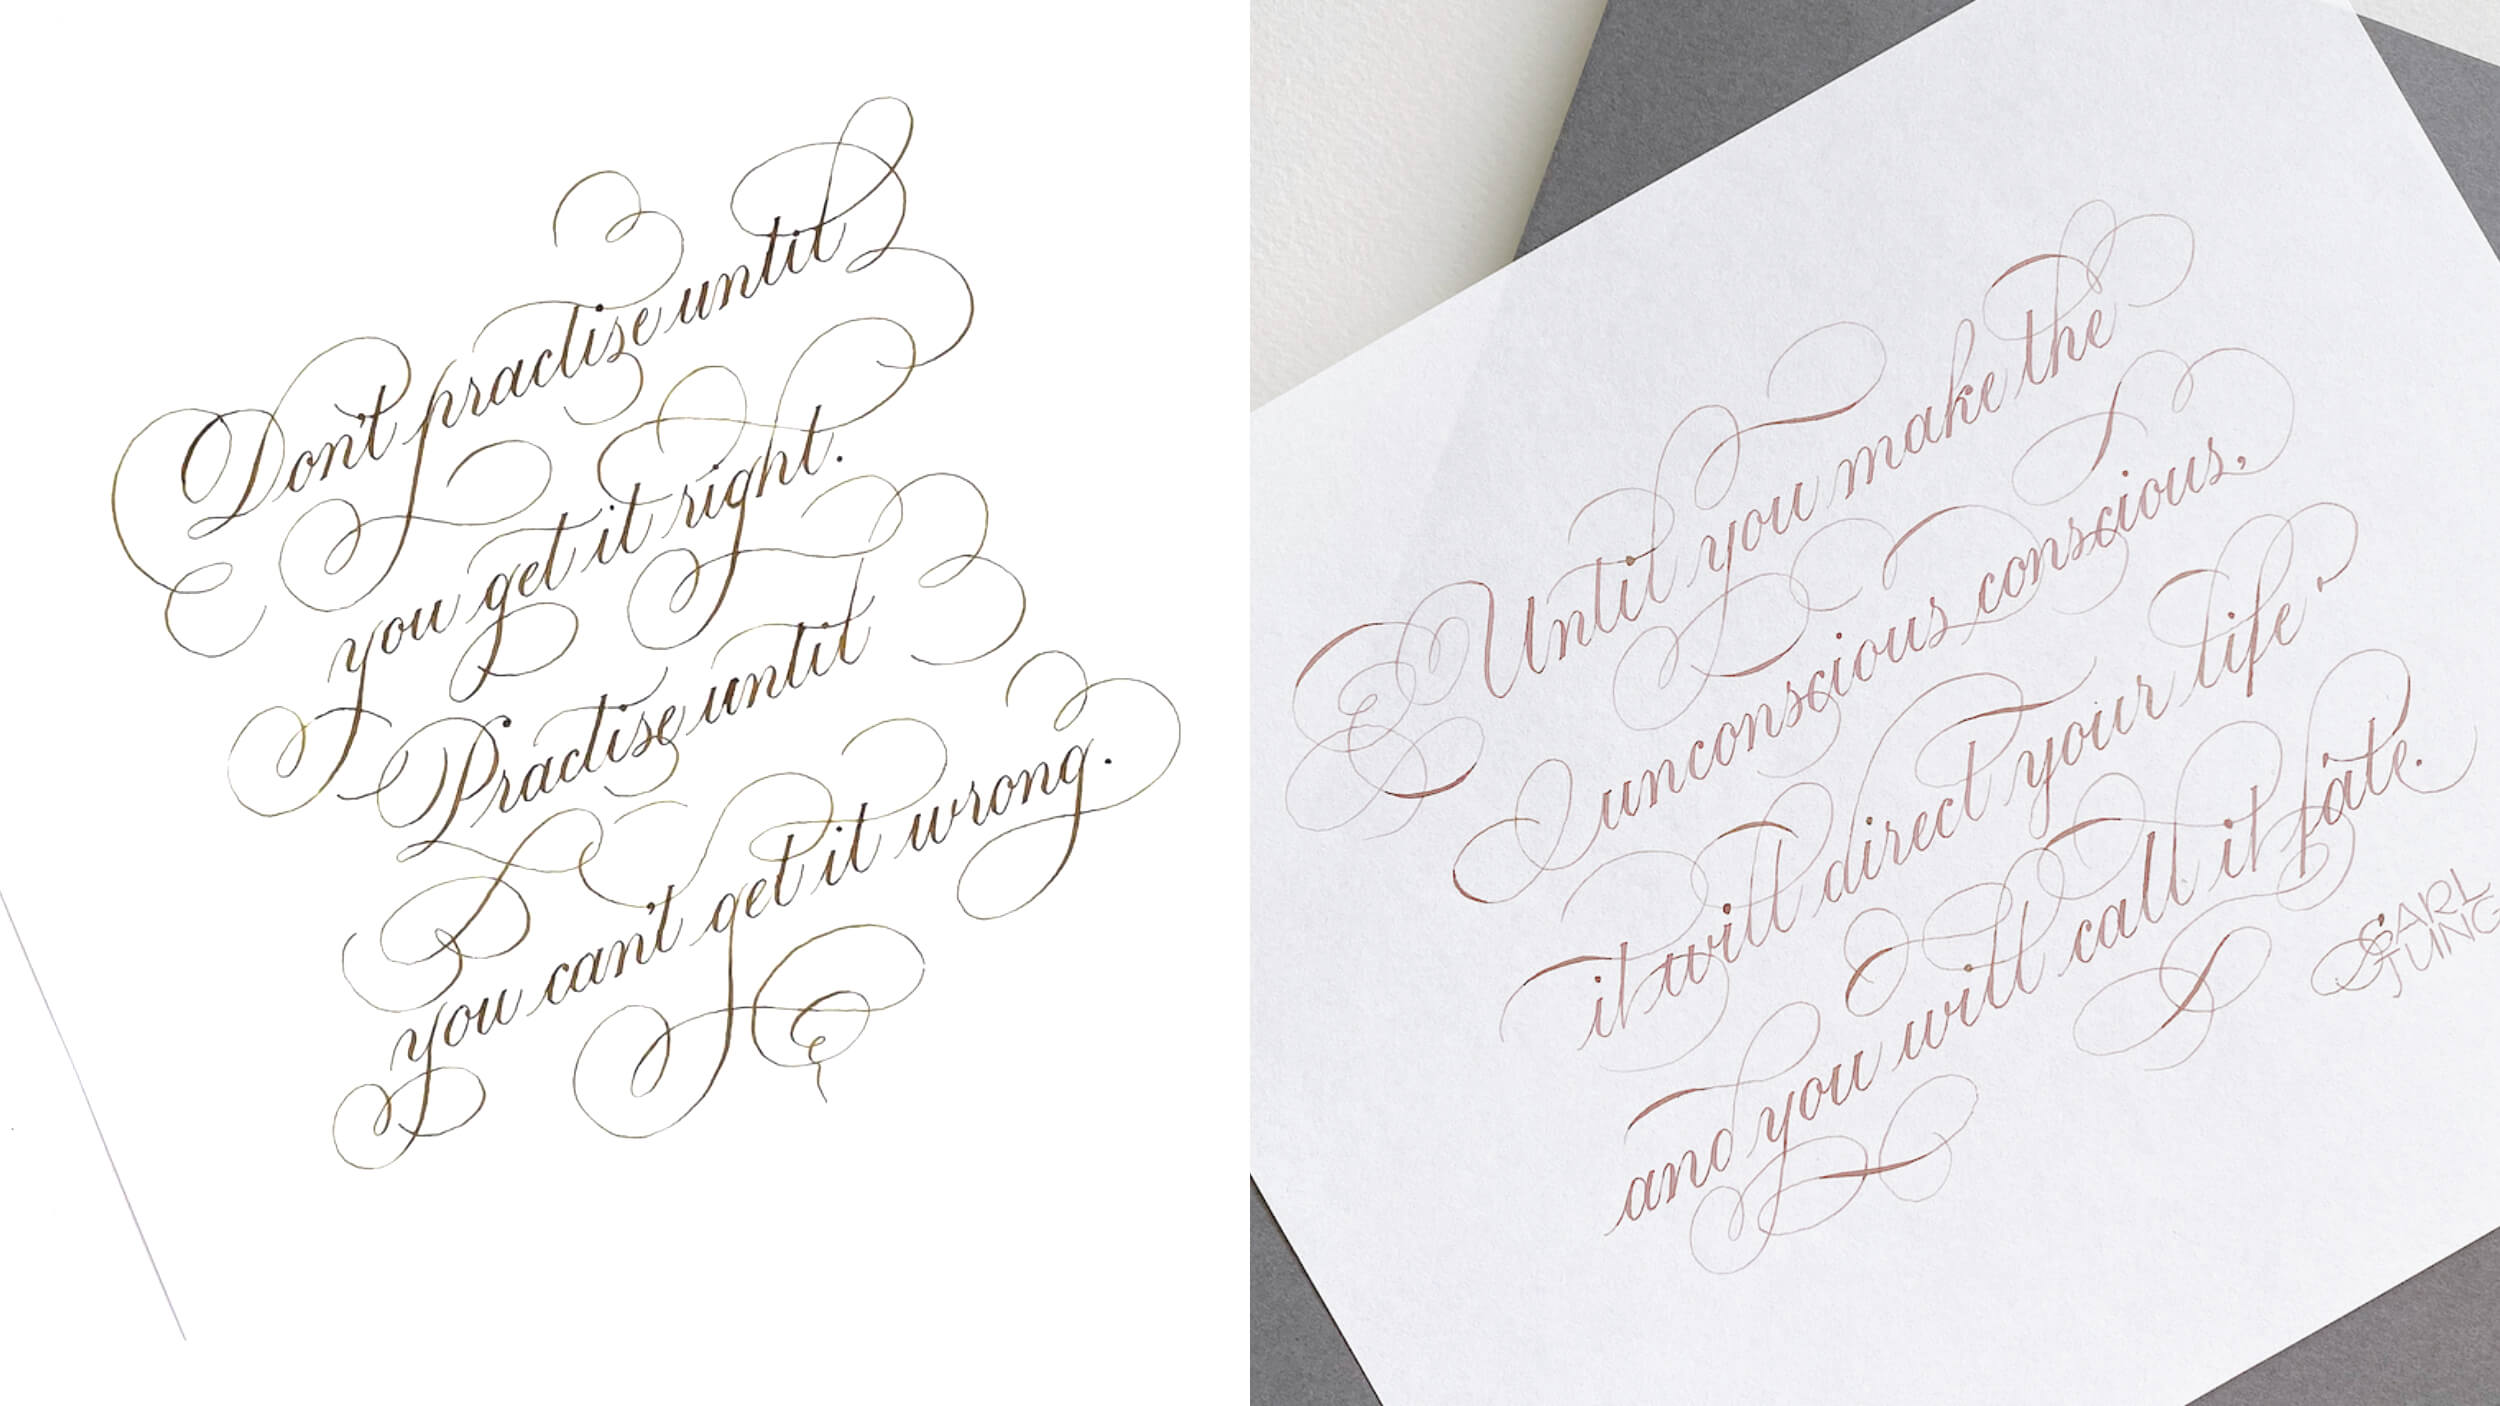 Don't practise until
you get it right.
Practise until
you can't get it wrong.
Until you make the
unconscious conscious,
it will direct your life
and you will call it fate.
CARL
JUNG